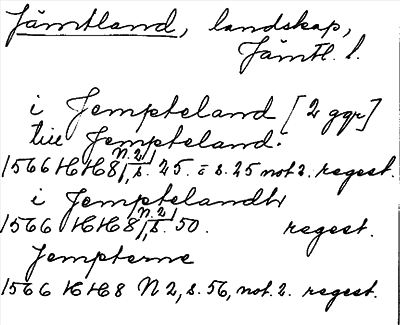 Jämtland, landskap,
Jämtl. l.
i Jempteland [2 ggr]
till Jempteland.
1566 HH8 [N. 2], s. 25. = s. 25 not 2. regest.
i Jemptelandh
1566 HH8 [N. 2], s. 50. regest.
Jempterne
1566 HH8 N 2, s. 56, not. 2. regest.